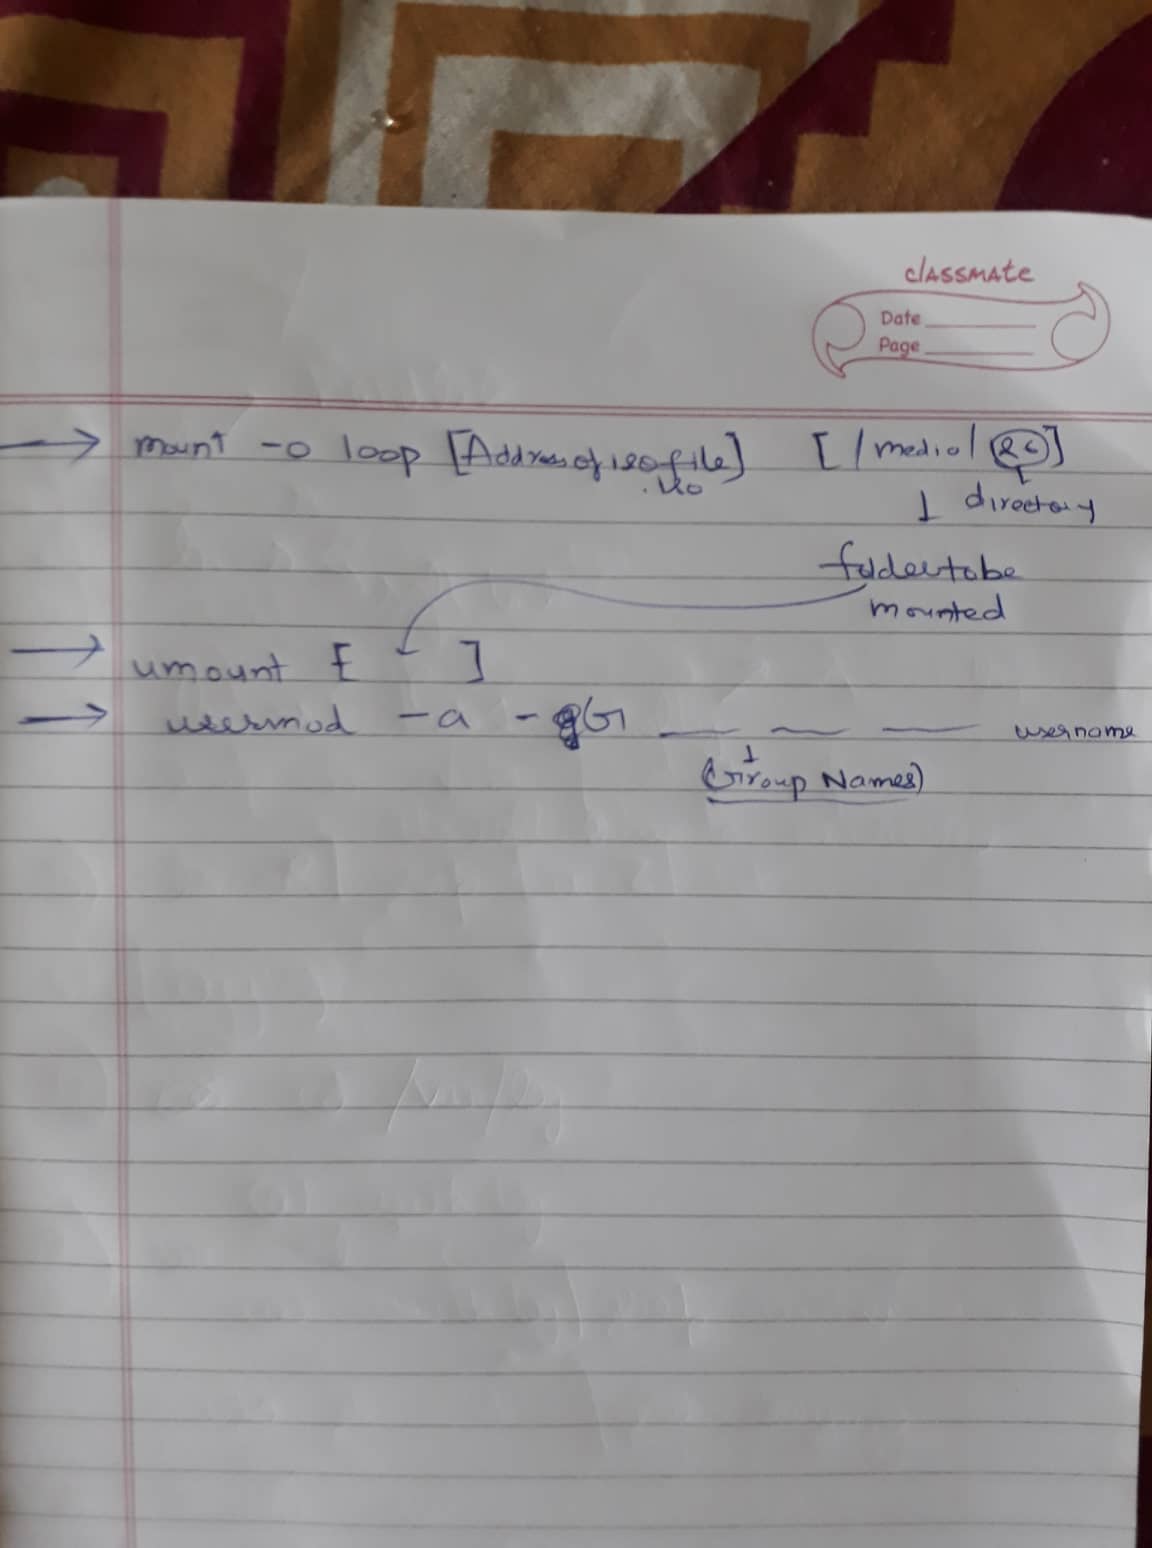 classmate
Date
Page
→ mount -o loop [Address of iso file] [/media/
.iso
↓ directory
folder to be
mounted
→ umount [ ]
→ usermod -a - G __ __ __ username
↓
(Group Names)